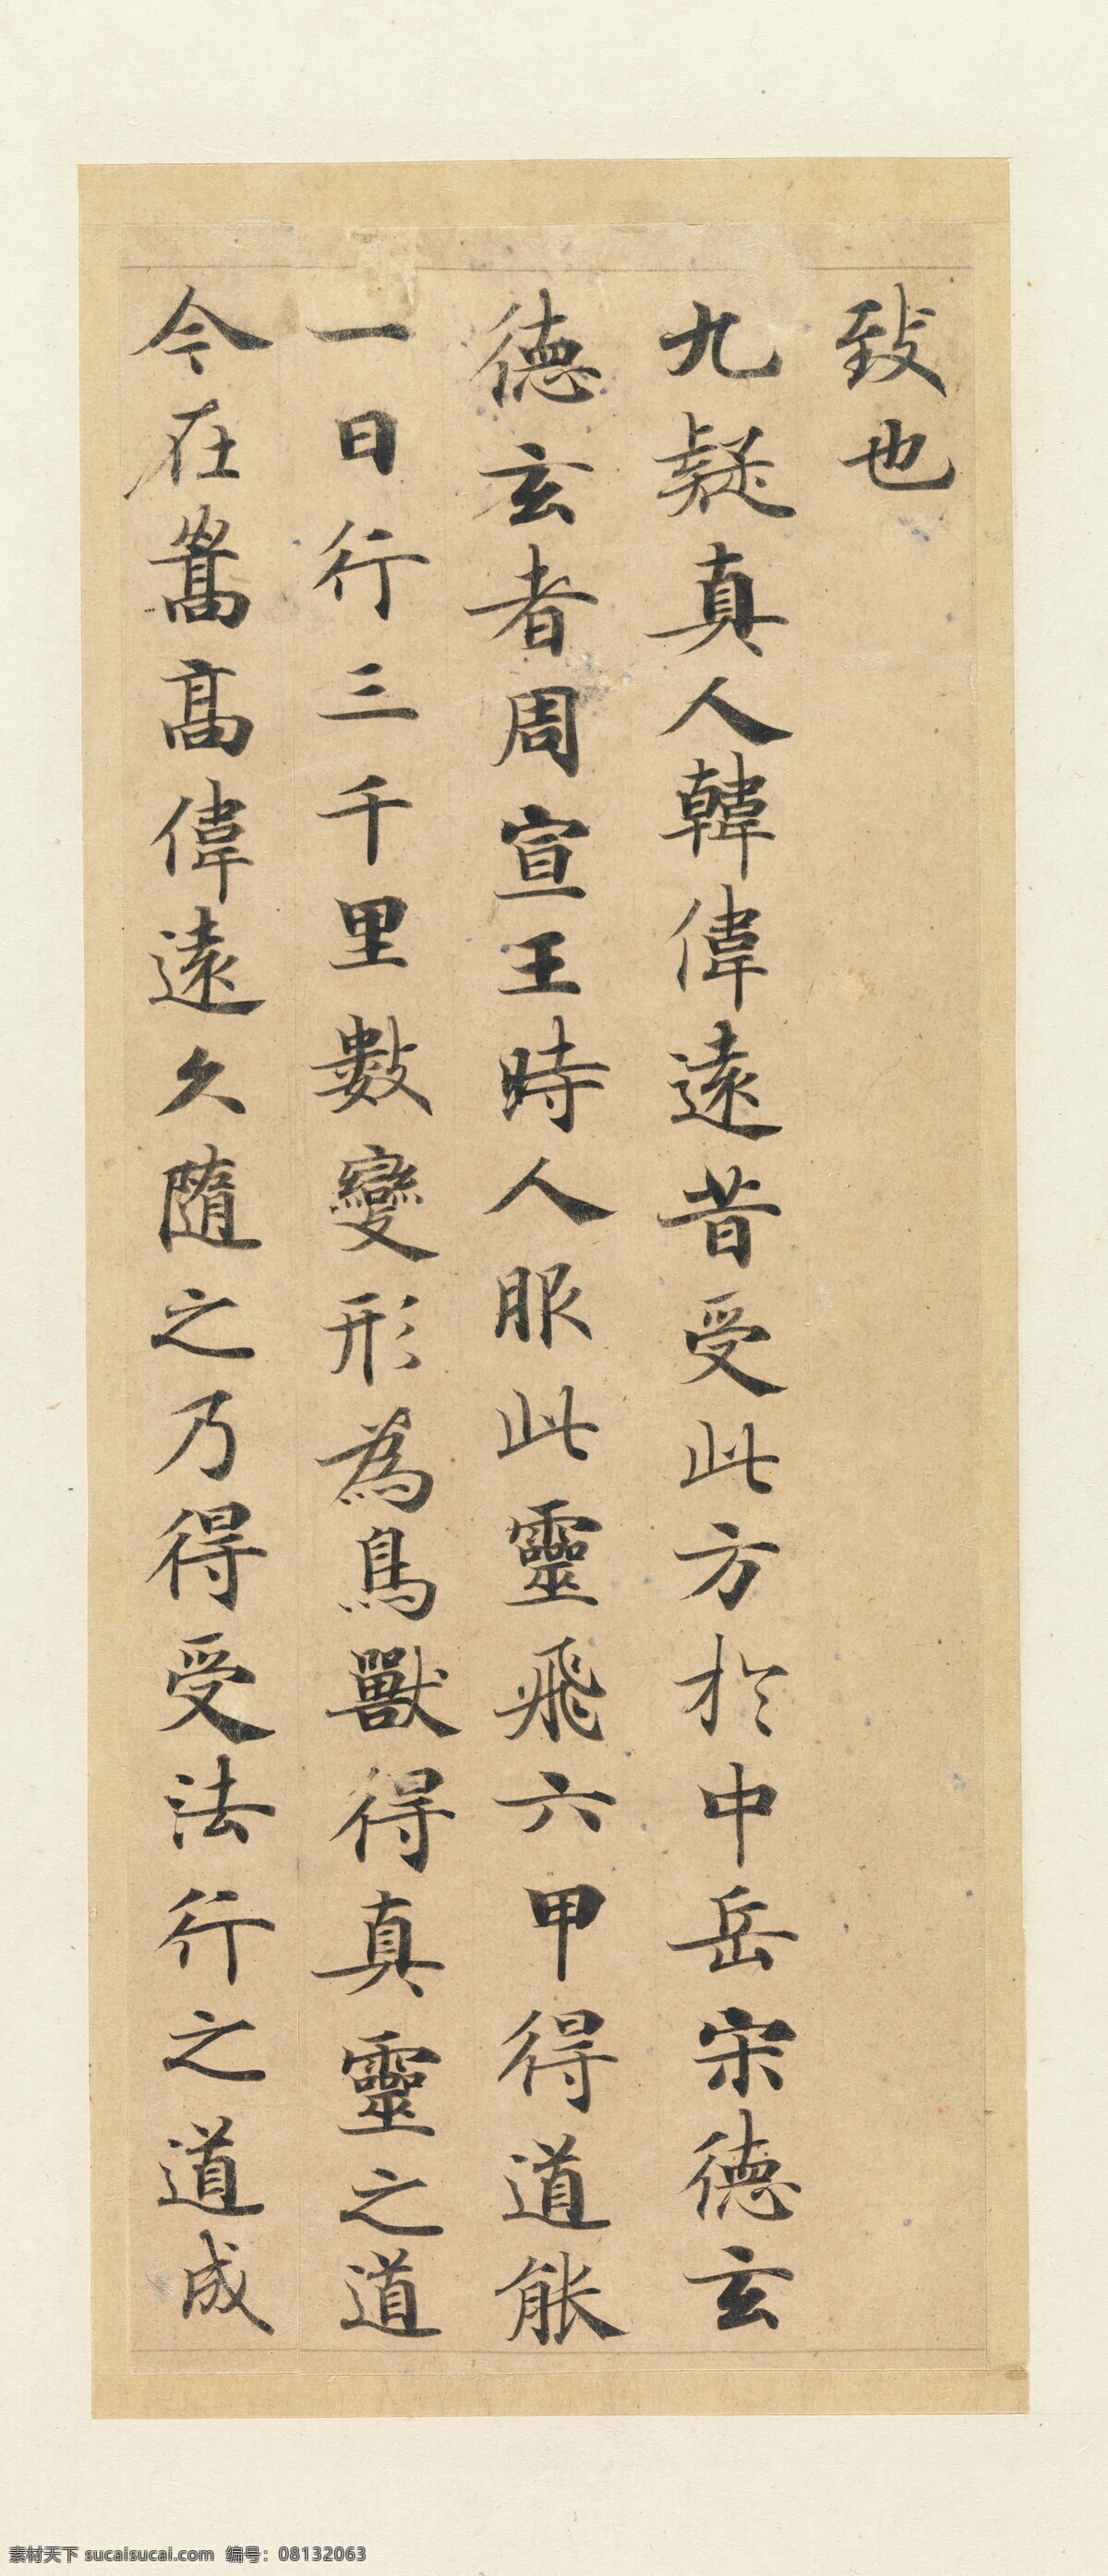 致也
九疑真人韓偉遠昔受此方於中岳宋德玄
德玄者周宣王時人服此靈飛六甲得道能
一日行三千里數變形為鳥獸得真靈之道
今在嵩高偉遠久隨之乃得受法行之道成
素材天下 sucaisucai.com 编号：08132063